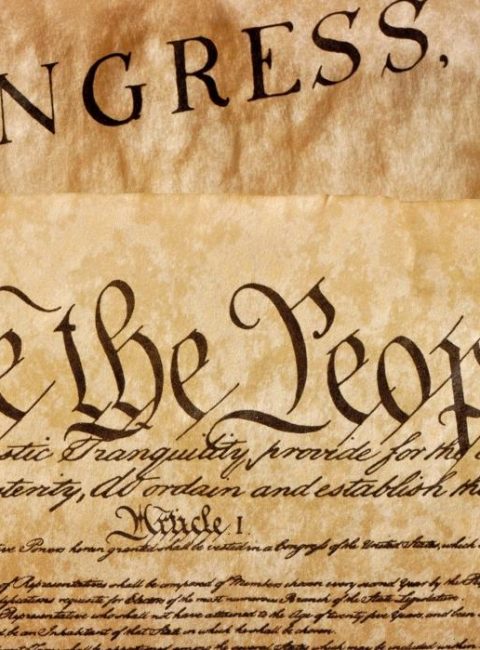 NGRESS,
e the Peop
stic Tranquility, provide for the
terity, do ordain and establish the
Article. I
ive Powers herein granted shall be vested in a Congress of the United States, which
of Representatives shall be composed of Members chosen every second Year by the
requisite for Electors of the most numerous Branch of the State Legislature.
Representative who shall not have attained to the Age of twenty five Years, and been
be an Inhabitant of that State in which he shall be chosen.
shall be apportioned among the several States which may be included within